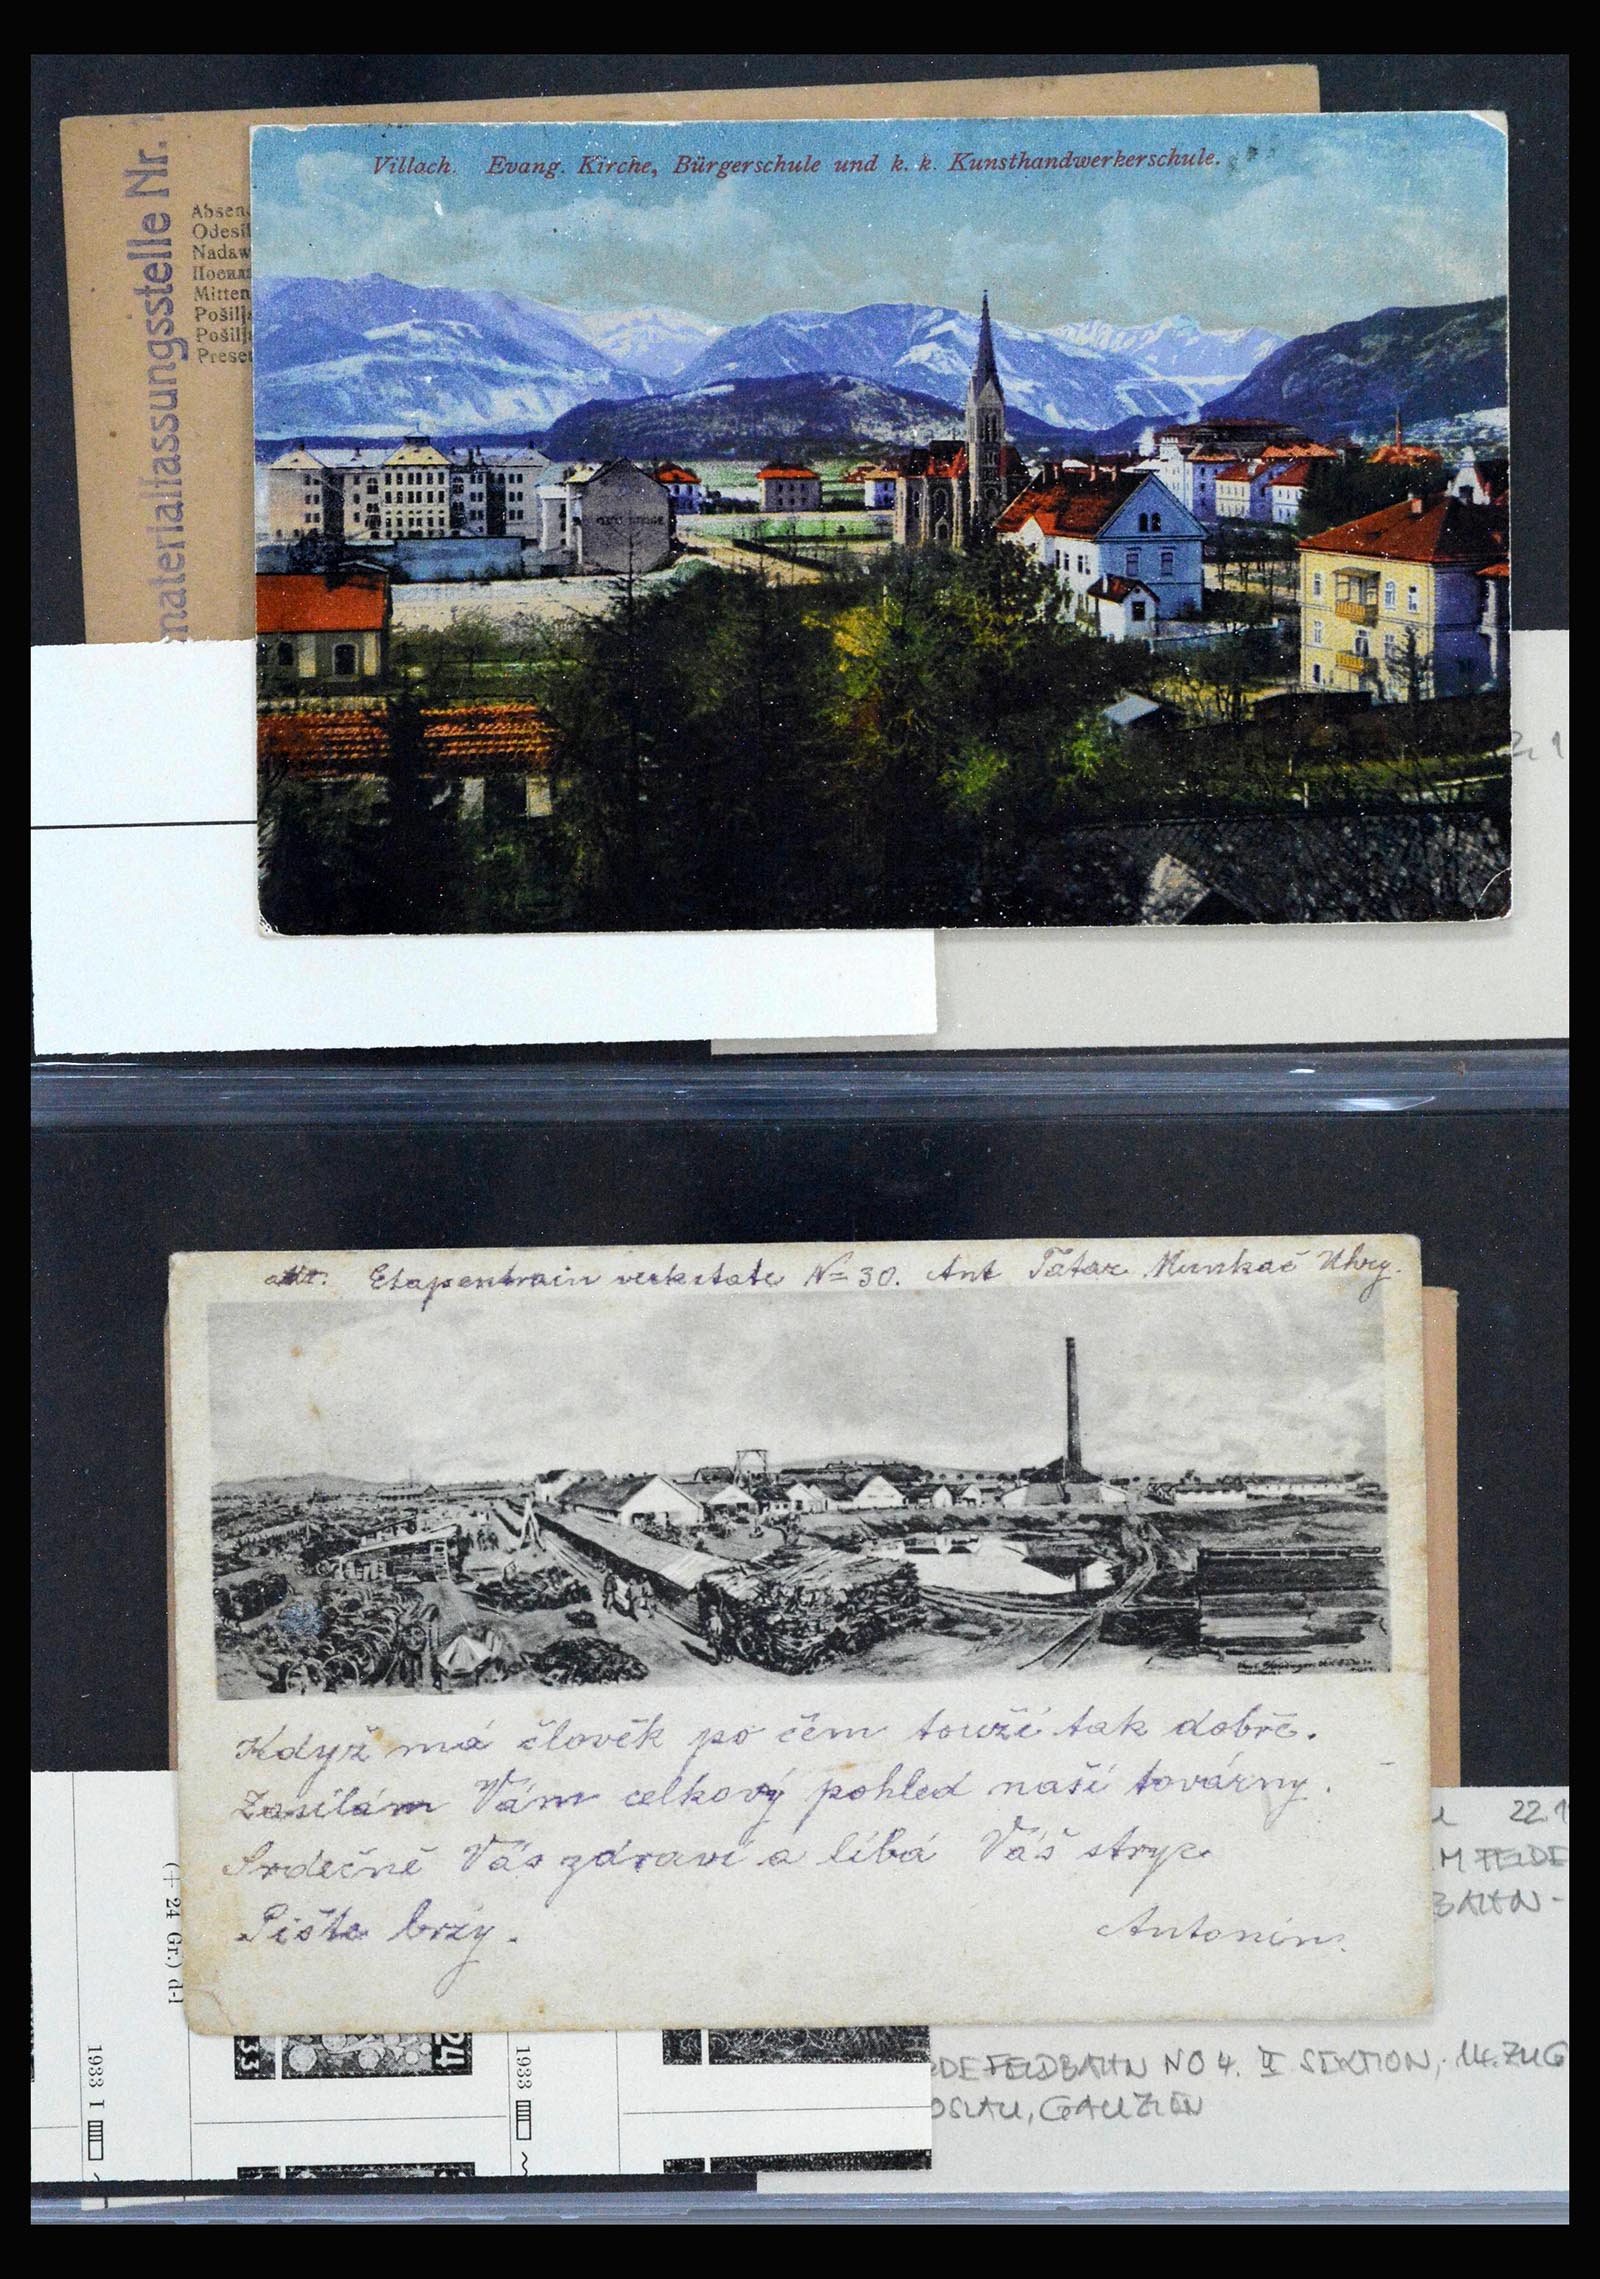 Villach. Evang. Kirche, Bürgerschule und k. k. Kunsthandwerkerschule.
materialfassungsstelle Nr.
Absen
Odesíl
Nadaw
Посил
Mitten
Pošilj
Pošilj
Preset
Z, 1
adr. Etapentrain verkstate No 30. Ant Tatar Munkač Uhry.
Když má člověk po čem touží tak dobře.
Zasílám Vám celkový pohled naší továrny.
Srdečně Vás zdraví a líbá Váš stryc
Pište brzy.
Antonín.
22.1
M FELDE
BAHN-
(+ 24 Gr.) d-l
1933 I
33
24
1933
RDEFELDBAHN NO 4. II SEKTION, 14. ZUG
OSLAU, GALIZIEN